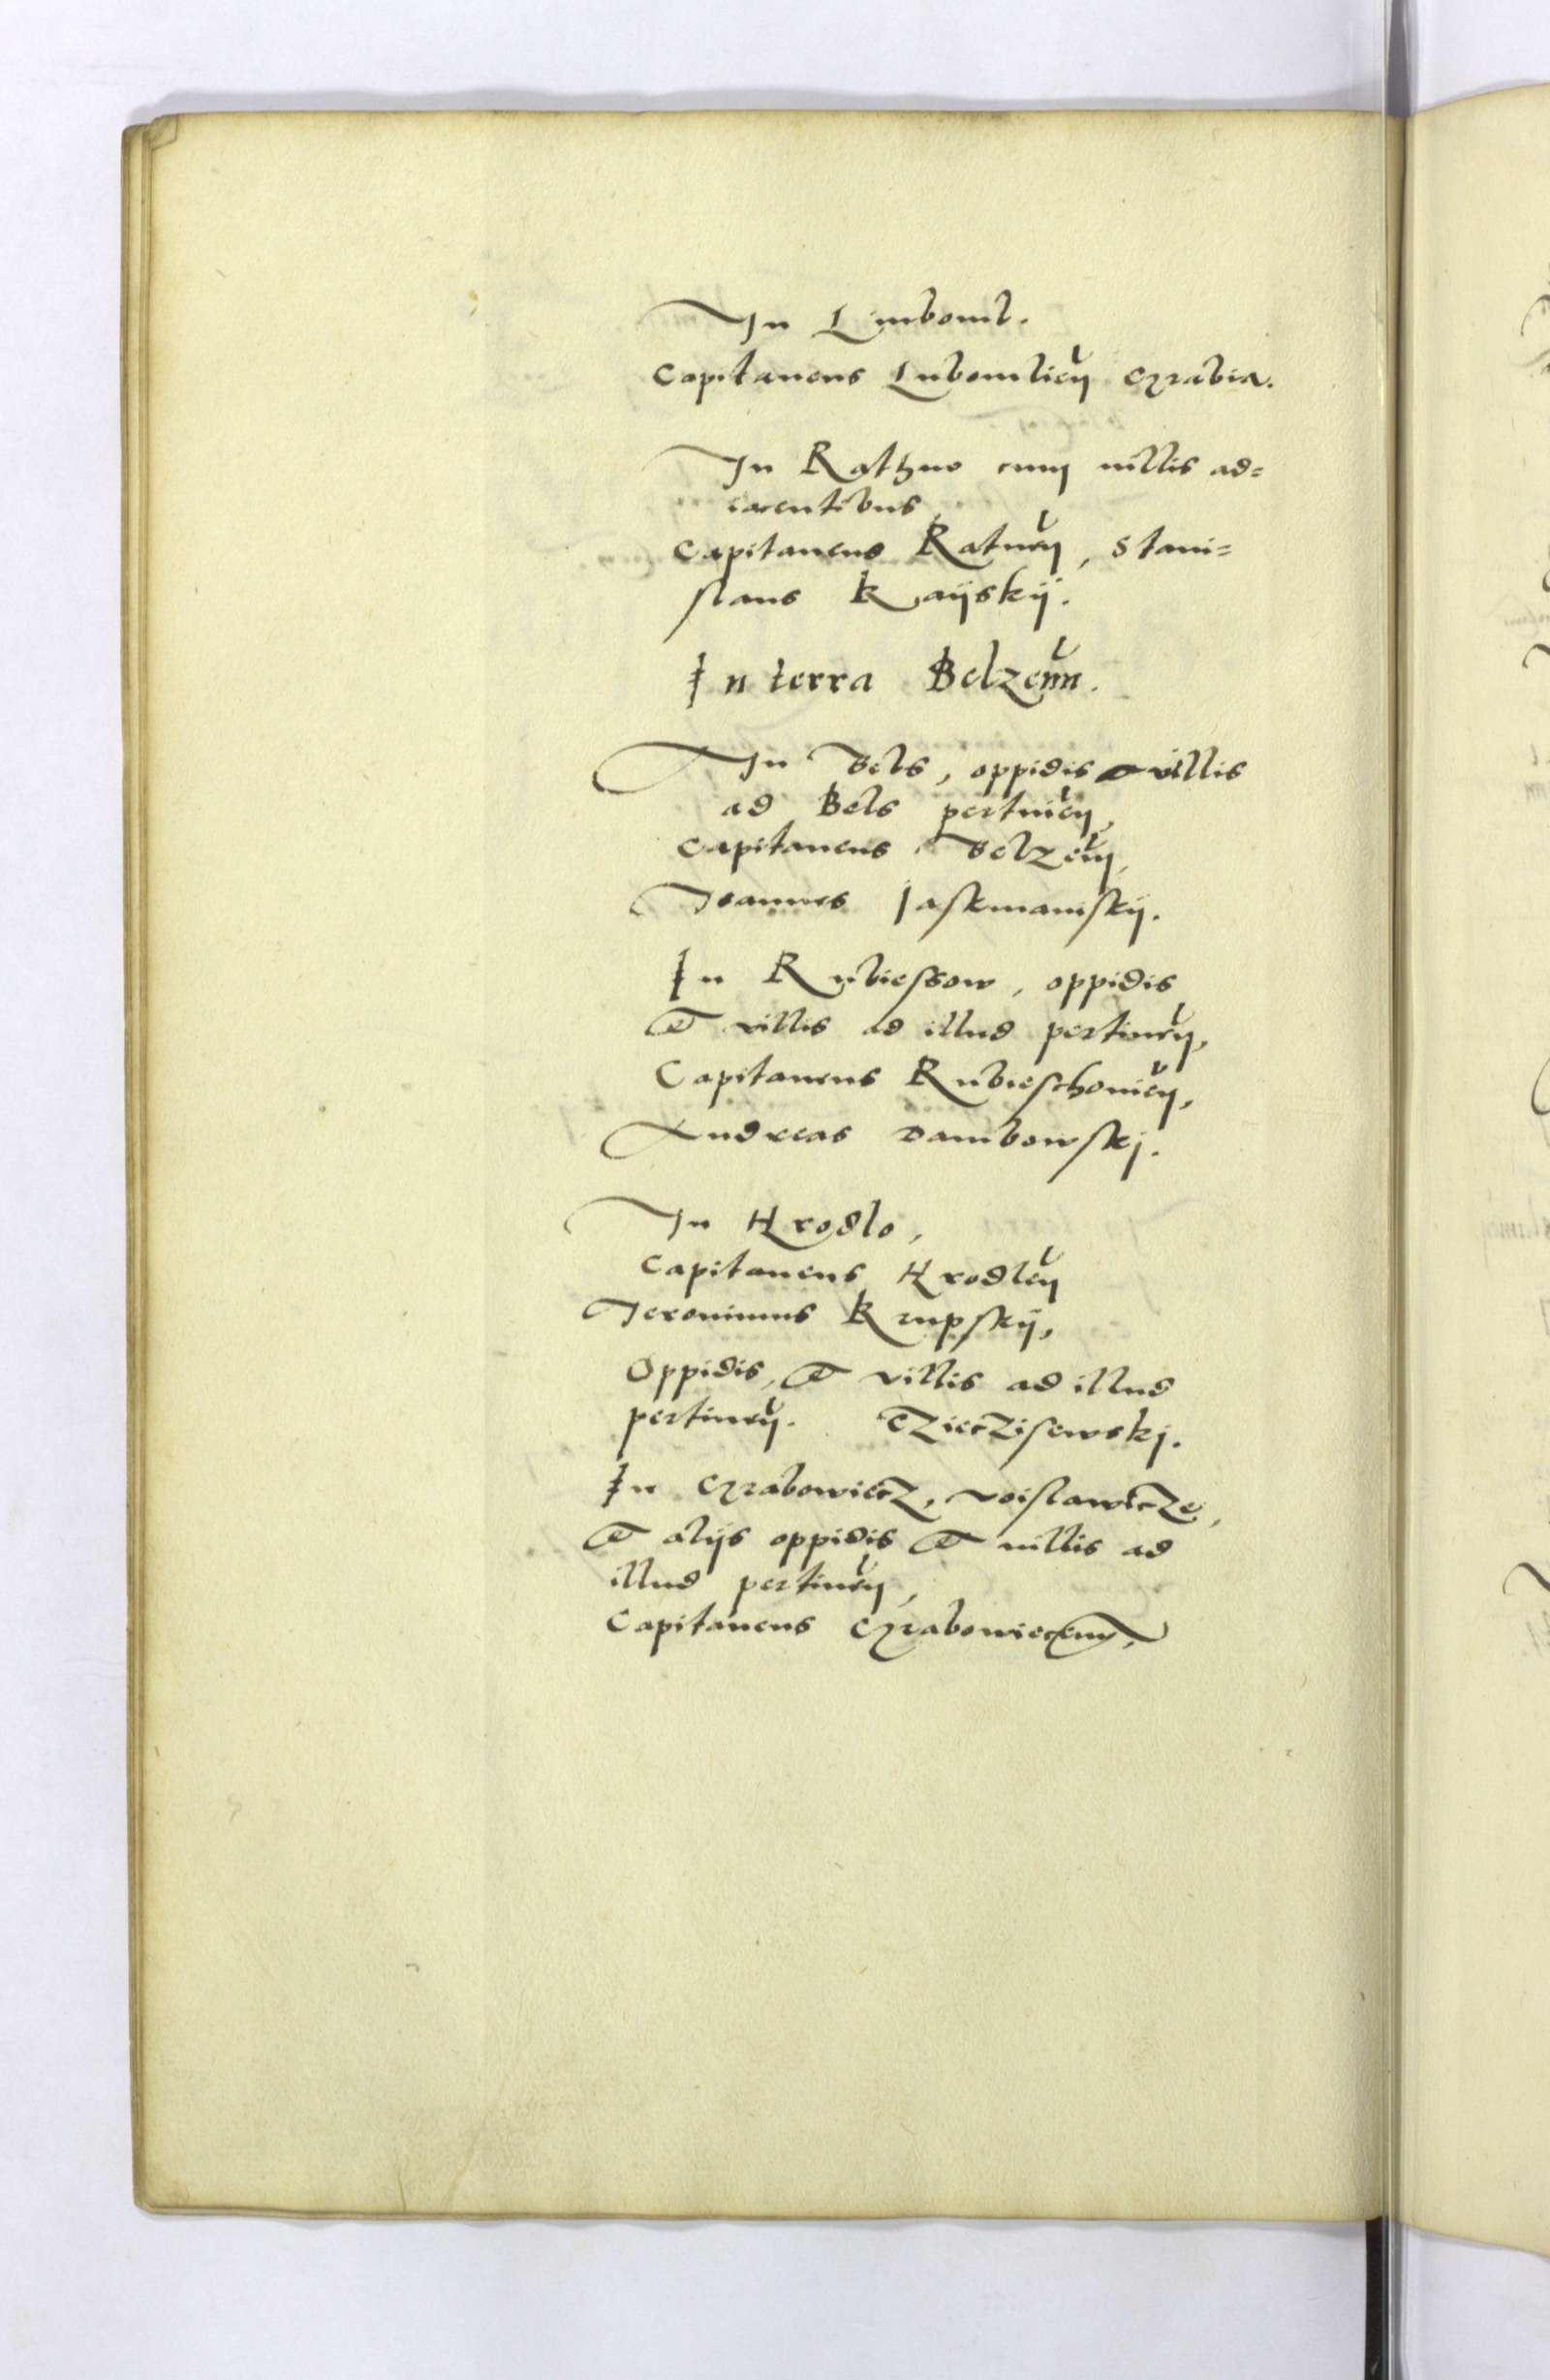 In Limboml.
Capitaneus Lubomlicn̄ Czrabia.
In Rathno cum uillis ad=
iacentibus
Capitaneus Ratnen̄, Stani=
slaus Kaijskij.
In terra Belzenn̄.
In Bels, oppidis et villis
ad Bels pertinen̄,
Capitaneus Belzen̄,
Joannes Jaskmaniskij.
In Rubiessow, oppidis
et villis ad illud pertinen̄,
Capitaneus Rubieschouien̄,
Andreas Dambowskj.
In Hrodlo,
Capitaneus Hrodlen̄
Jeronimus Krupskij,
Oppidis, et villis ad illud
pertinen̄. CziecZisewskj.
In Czrabowiecz, Voislawicze,
et alijs oppidis et uillis ad
illud pertinen̄,
Capitaneus Czrabowiecen̄,